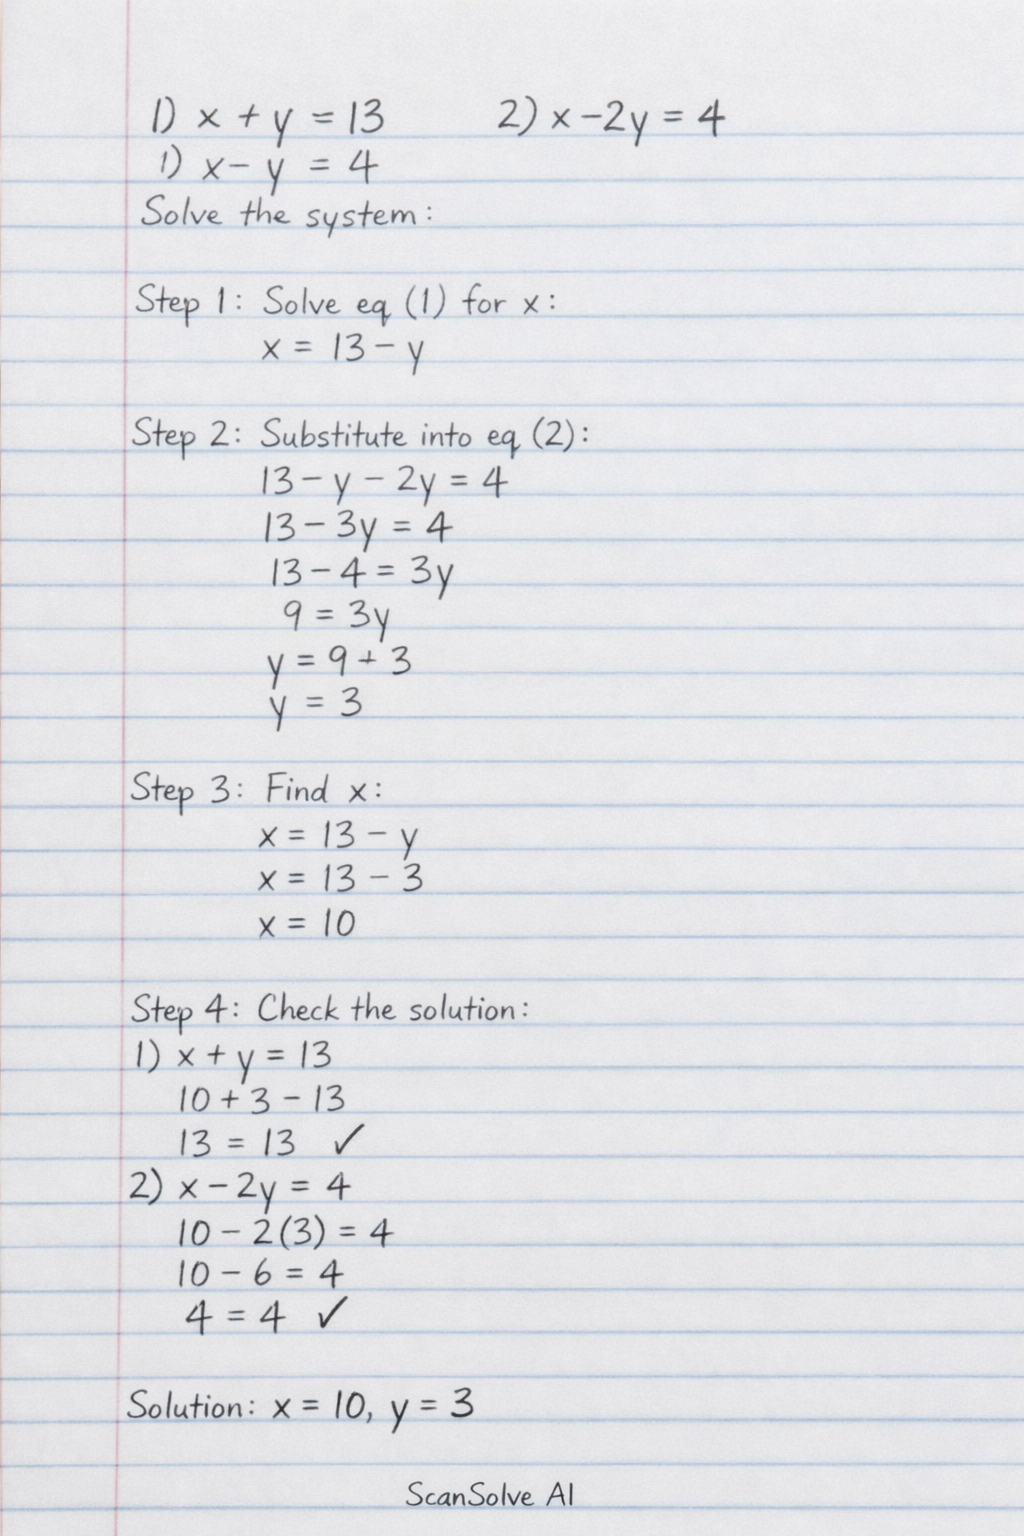 1) x + y = 13 2) x - 2y = 4
1) x - y = 4
Solve the system:
Step 1: Solve eq (1) for x:
x = 13 - y
Step 2: Substitute into eq (2):
13 - y - 2y = 4
13 - 3y = 4
13 - 4 = 3y
9 = 3y
y = 9 + 3
y = 3
Step 3: Find x:
x = 13 - y
x = 13 - 3
x = 10
Step 4: Check the solution:
1) x + y = 13
10 + 3 - 13
13 = 13 ✓
2) x - 2y = 4
10 - 2(3) = 4
10 - 6 = 4
4 = 4 ✓
Solution: x = 10, y = 3
ScanSolve AI